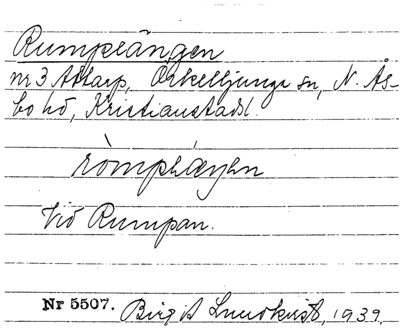 Rumpeängen
nr 3 Attarp, Örkelljunga sn, N. Ås-
bo hd, Kristianstads l.
Vid Rumpan.
Nr 5507. Birgit Lundkvist, 1939.